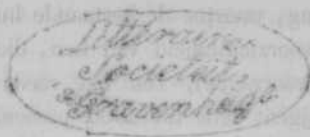 Litteraire
Societeit,
'sGravenhage